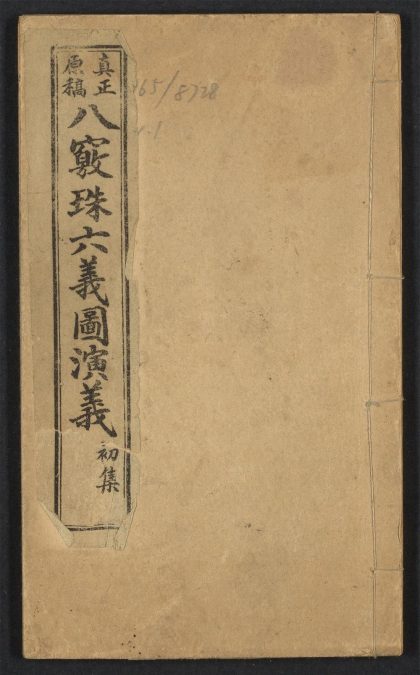 真正
原稿
八竅珠六義圖演義
初集
165/8728
v.1